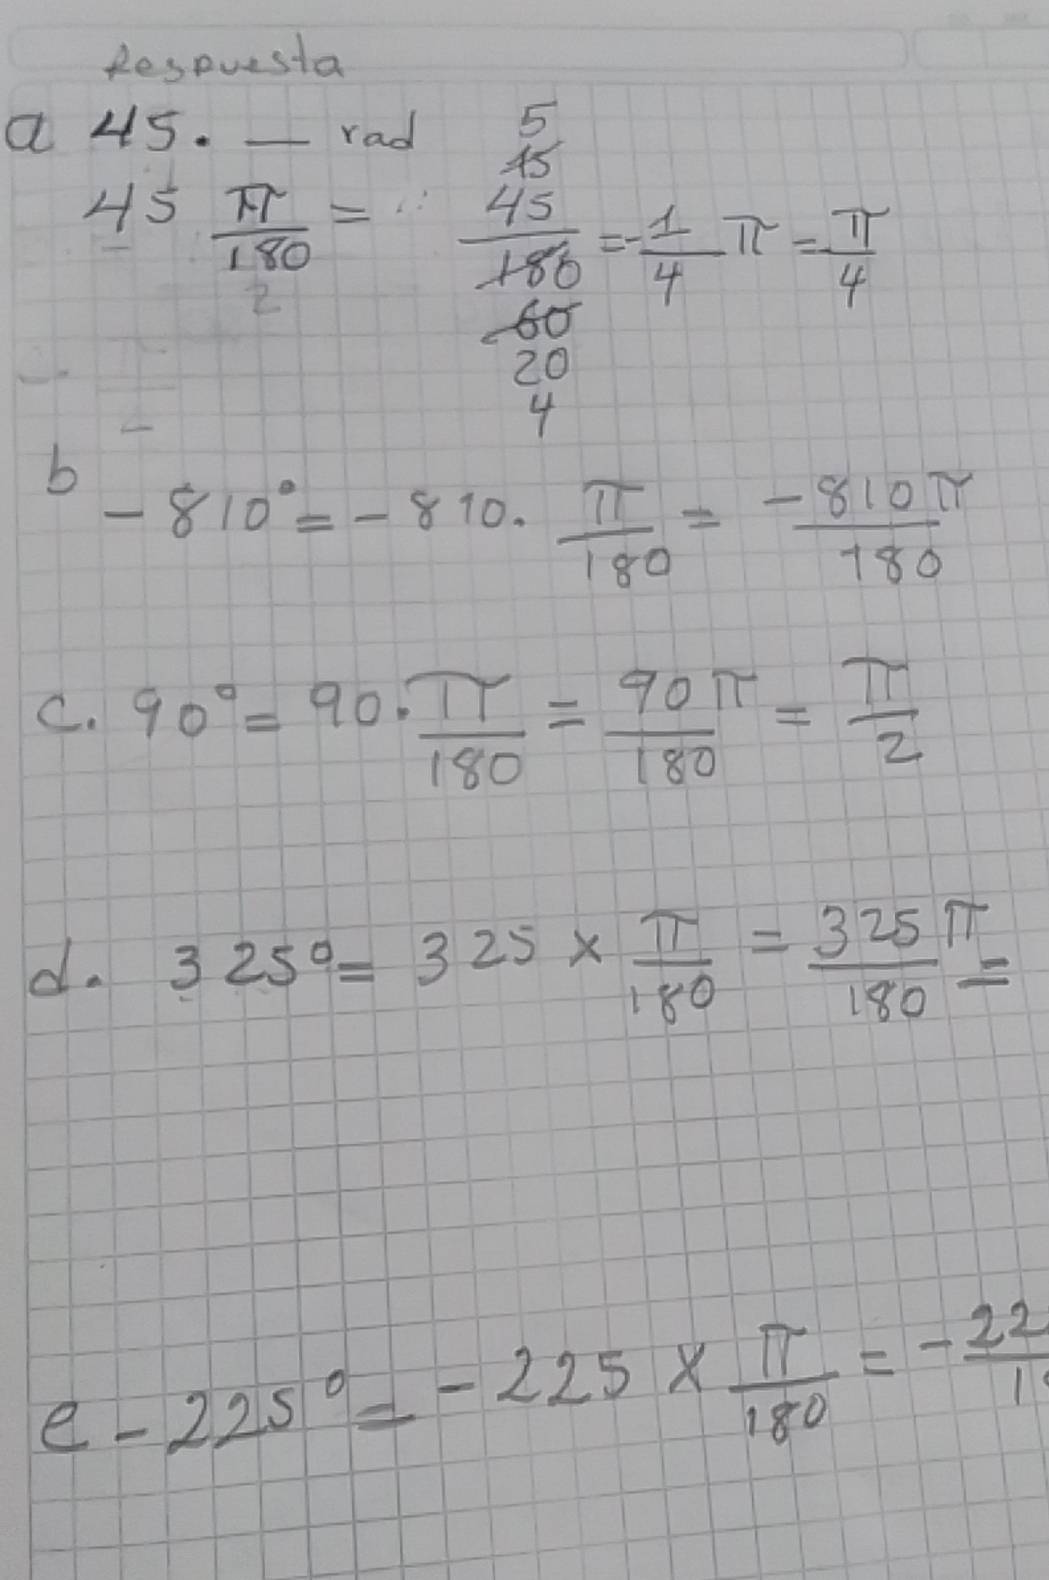 Respuesta
a 45. — rad
45 π/180 = 45/180 = -1/4 π = π/4
5
15
60
20
4
b -810° = -810. π/180 = -810π/180
c. 90° = 90. π/180 = 90π/180 = π/2
d. 325° = 325 x π/180 = 325π/180 =
e -225° = -225 x π/180 = -22